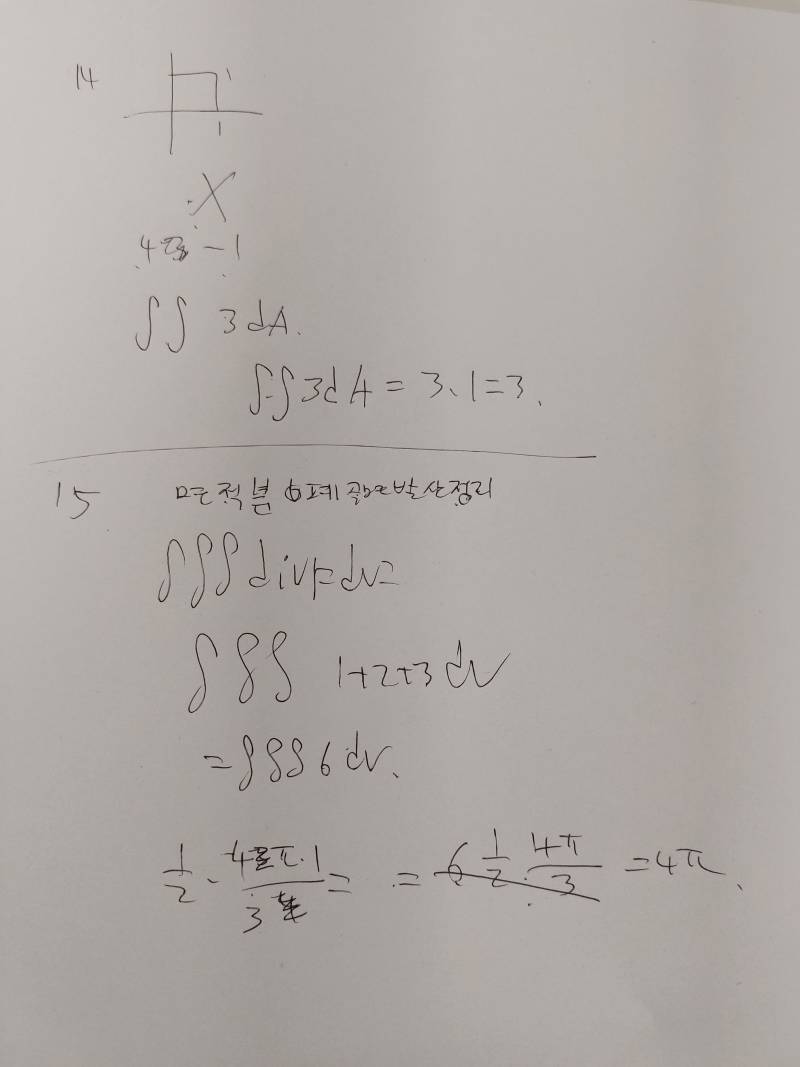 14
1
1
X
4 - 1
∫∫ 3dA.
∫∫3dA = 3·1=3.
15 적분 발산정리
∫∫∫ divF dv=
∫∫∫ 1+2+3 dv
=∫∫∫ 6 dv.
1/2 · 4π·1/3 = = 6 1/2 · 4π/3 = 4π.